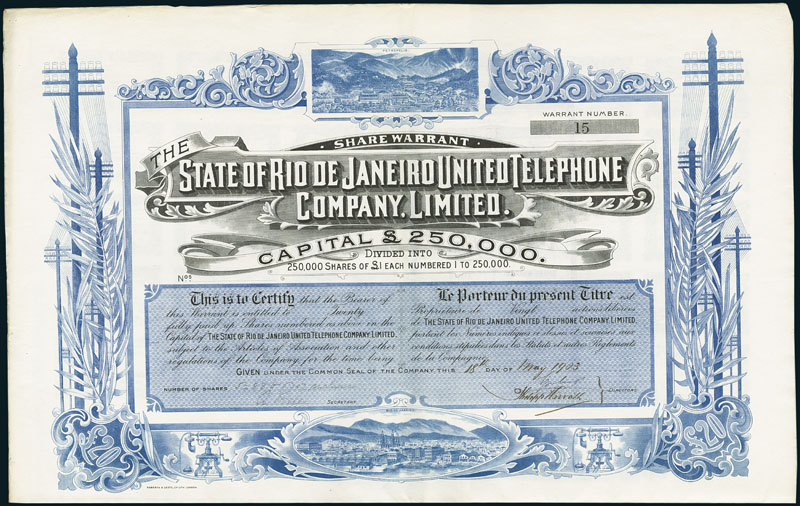 PETROPOLIS.
WARRANT NUMBER.
15
· SHARE WARRANT ·
THE
STATE OF RIO DE JANEIRO UNITED TELEPHONE
COMPANY, LIMITED.
CAPITAL £250,000.
DIVIDED INTO
250,000 SHARES OF £1 EACH NUMBERED 1 TO 250,000.
Nos
This is to Certify that the Bearer of
this Warrant is entitled to Twenty
fully paid up Shares numbered as above in the
Capital of THE STATE OF RIO DE JANEIRO UNITED TELEPHONE COMPANY, LIMITED.
subject to the Articles of Association and other
regulations of the Company for the time being.
Le Porteur du présent Titre est
Propriétaire de Vingt actions libérées
de THE STATE OF RIO DE JANEIRO UNITED TELEPHONE COMPANY, LIMITED.
portant les Numéros ci-dessus et soumises aux
conditions stipulées dans les Statuts et autres Règlements
de la Compagnie.
GIVEN UNDER THE COMMON SEAL OF THE COMPANY THIS 18 DAY OF May 1903
NUMBER OF SHARES
SECRETARY.
DIRECTORS.
RIO DE JANEIRO.
£20
£20